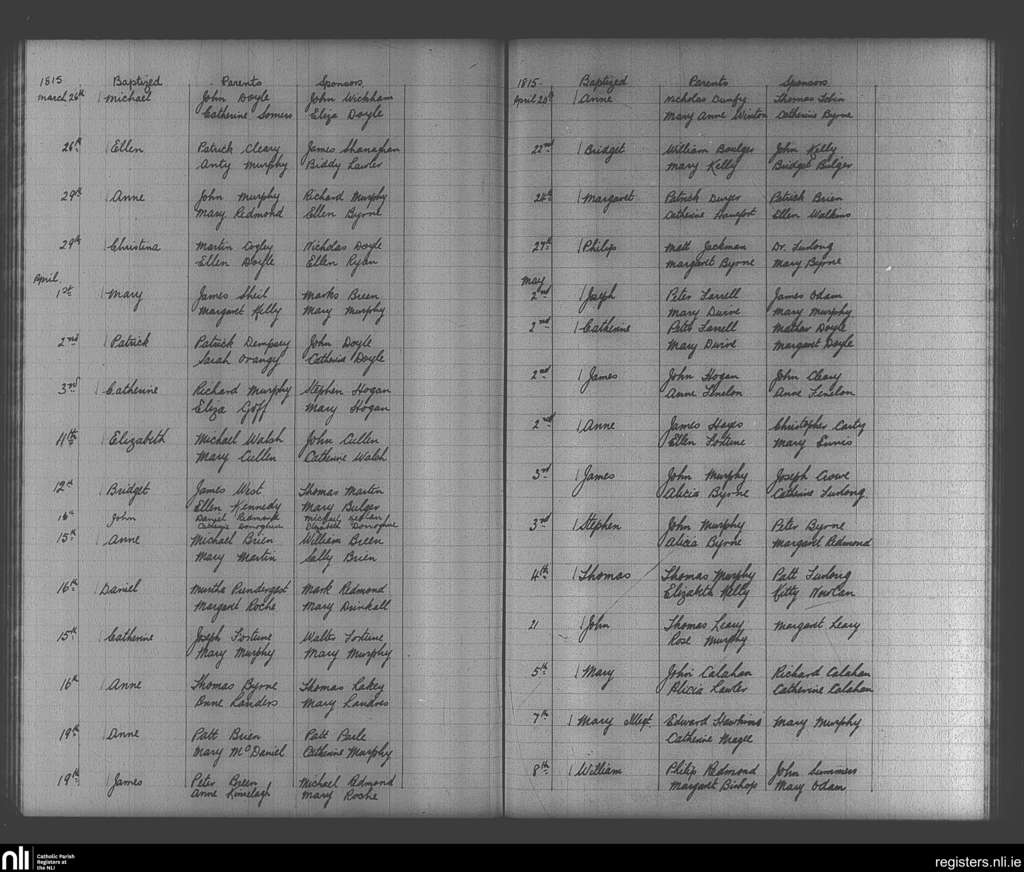 1815 Baptized Parents Sponsors
March 26th Michael John Doyle John Wickham
Catherine Somers Eliza Doyle
26th Ellen Patrick Cleary James Shanaghan
Anty Murphy Biddy Lawler
29th Anne John Murphy Richard Murphy
Mary Redmond Ellen Byrne
29th Christina Martin Cogley Nicholas Doyle
Ellen Doyle Ellen Ryan
April
1st Mary James Sheil Marks Breen
Margaret Kelly Mary Murphy
2nd Patrick Patrick Dempsey John Doyle
Sarah Orangy Catherine Doyle
3rd Catherine Richard Murphy Stephen Hogan
Eliza Goff Mary Hogan
11th Elizabeth Michael Walsh John Cullen
Mary Cullen Catherine Walsh
12th Bridget James West Thomas Martin
Ellen Kennedy Mary Bulger
John Daniel Redmond Michael
Donoghue Elizabeth Donoghue
15th Anne Michael Brien William Breen
Mary Martin Sally Brien
16th Daniel Murtha Pundergast Mark Redmond
Margaret Roche Mary Drinkall
15th Catherine Joseph Fortune Walter Fortune
Mary Murphy Mary Murphy
16th Anne Thomas Byrne Thomas Lakey
Anne Landers Mary Landres
19th Anne Patt Brien Patt Parle
Mary McDaniel Catherine Murphy
19th James Peter Breen Michael Redmond
Anne Mary Roche
1815 Baptized Parents Sponsors
April 20th Anne Nicholas Dunfy Thomas Tobin
Mary Anne Winton Catherine Byrne
22nd Bridget William Boulger John Kelly
Mary Kelly Bridget Bulger
24th Margaret Patrick Dwyer Patrick Brien
Catherine Ellen Walkins
27th Philip Matt Jackman Dr. Furlong
Margaret Byrne Mary Byrne
May
2nd Joseph Peter Farrell James Odam
Mary Mary Murphy
2nd Catherine Peter Farrell Mathew Doyle
Mary Margaret Doyle
2nd James John Hogan John Cleary
Anne Fenelon Anne Fenelon
2nd Anne James Hayes Christopher Carty
Ellen Fortune Mary Ennis
3rd James John Murphy Joseph Crowe
Alicia Byrne Catherine Furlong
3rd Stephen John Murphy Peter Byrne
Alicia Byrne Margaret Redmond
4th Thomas Thomas Murphy Patt Furlong
Elizabeth Kelly Kitty Nowlan
21 John Thomas Leary Margaret Leary
Rose Murphy
5th Mary John Calahan Richard Calahan
Alicia Lawler Catherine Calahan
7th Mary Illegt. Edward Hawkins Mary Murphy
Catherine Magee
8th William Philip Redmond John Summers
Margaret Bishop Mary Odam
nli Catholic Parish
Registers at
the NLI
registers.nli.ie